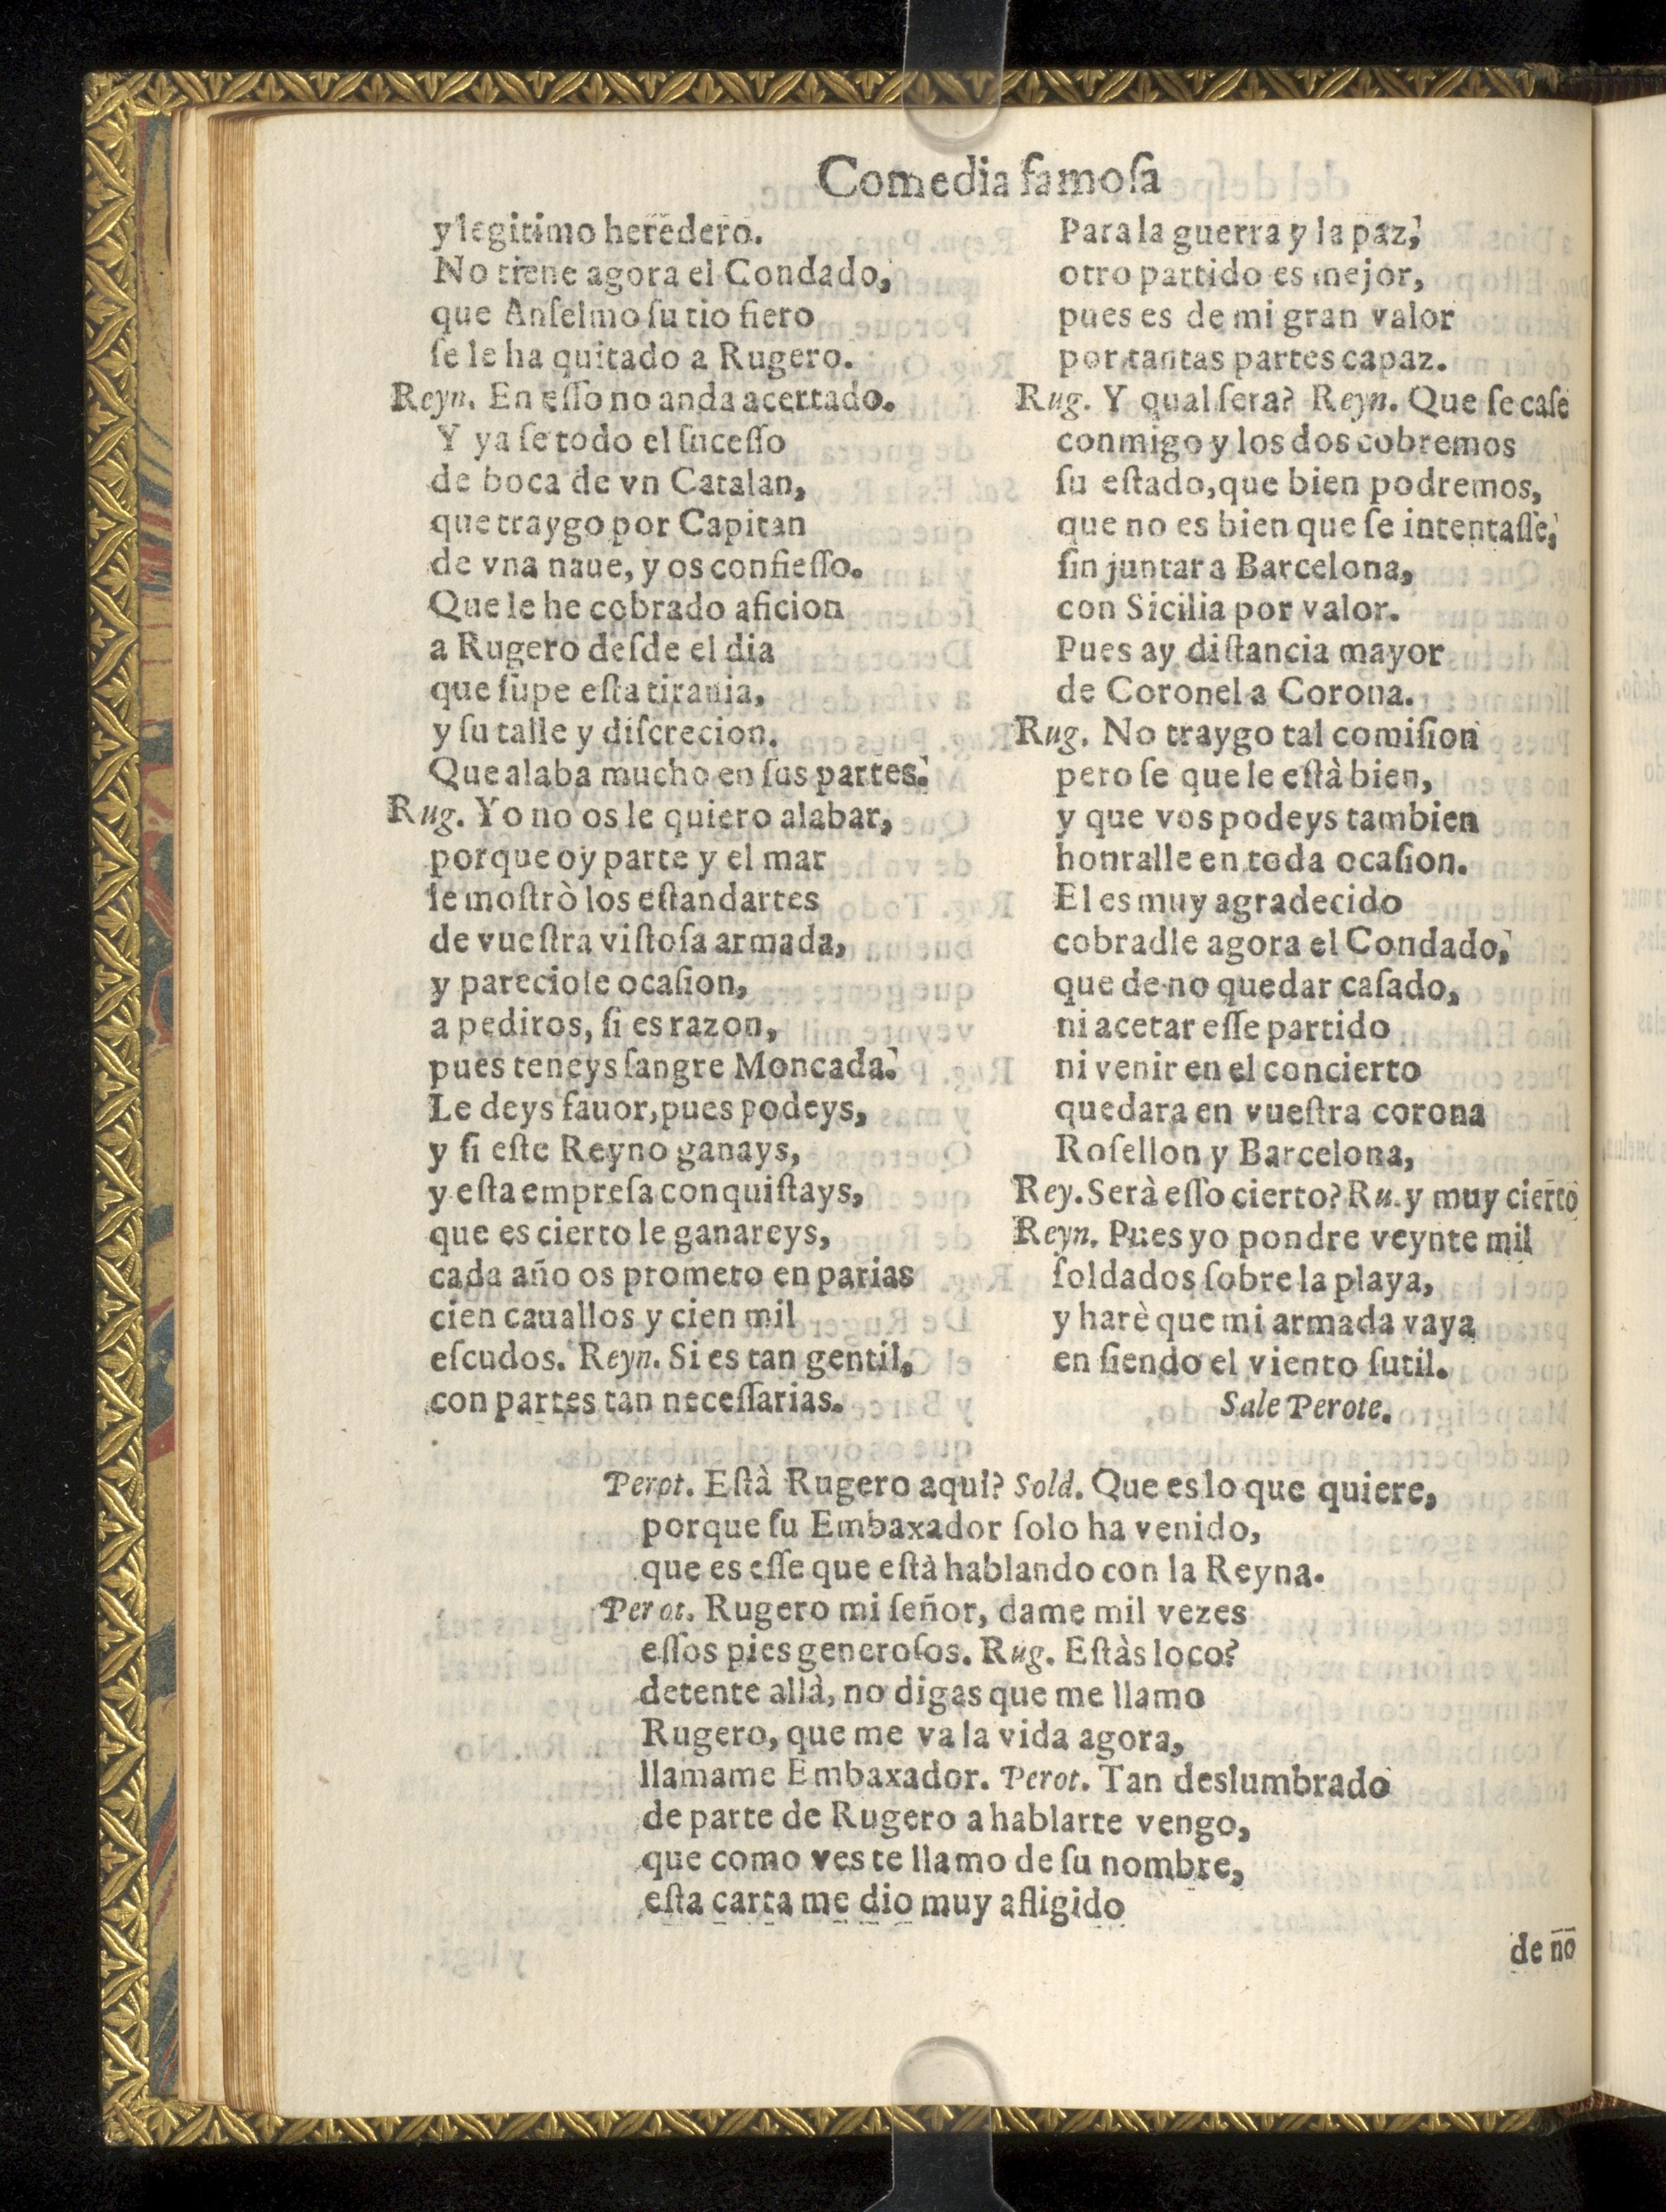 Comedia famoſa
y legitimo heredero.
No tiene agora el Condado,
que Anſelmo ſu tio fiero
ſe le ha quitado a Rugero.
Reyn. En eſſo no anda acertado.
Y ya ſe todo el ſuceſſo
de boca de vn Catalan,
que traygo por Capitan
de vna naue, y os confieſſo.
Que le he cobrado aficion
a Rugero deſde el dia
que ſupe eſta tirania,
y ſu talle y diſcrecion.
Que alaba mucho en ſus partes.
Rug. Yo no os le quiero alabar,
porque oy parte y el mar
le moſtrò los eſtandartes
de vueſtra viſtoſa armada,
y pareciole ocaſion,
a pediros, ſi es razon,
pues teneys ſangre Moncada.
Le deys fauor, pues podeys,
y ſi eſte Reyno ganays,
y eſta empreſa conquiſtays,
que es cierto le ganareys,
cada año os prometo en parias
cien cauallos y cien mil
eſcudos. Reyn. Si es tan gentil,
con partes tan neceſſarias.
Para la guerra y la paz,
otro partido es mejor,
pues es de mi gran valor
por tantas partes capaz.
Rug. Y qual ſera? Reyn. Que ſe caſe
conmigo y los dos cobremos
ſu eſtado, que bien podremos,
que no es bien que ſe intentaſſe,
ſin juntar a Barcelona,
con Sicilia por valor.
Pues ay diſtancia mayor
de Coronel a Corona.
Rug. No traygo tal comiſion
pero ſe que le eſtà bien,
y que vos podeys tambien
honralle en toda ocaſion.
El es muy agradecido
cobradle agora el Condado,
que de no quedar caſado,
ni acetar eſſe partido
ni venir en el concierto
quedara en vueſtra corona
Roſellon y Barcelona,
Rey. Serà eſſo cierto? Ru. y muy cierto
Reyn. Pues yo pondre veynte mil
ſoldados ſobre la playa,
y harè que mi armada vaya
en ſiendo el viento ſutil.
Sale Perote.
Perot. Eſtà Rugero aqui? Sold. Que es lo que quiere,
porque ſu Embaxador ſolo ha venido,
que es eſſe que eſtà hablando con la Reyna.
Perot. Rugero mi ſeñor, dame mil vezes
eſſos pies generoſos. Rug. Eſtàs loco?
detente allà, no digas que me llamo
Rugero, que me va la vida agora,
llamame Embaxador. Perot. Tan deslumbrado
de parte de Rugero a hablarte vengo,
que como ves te llamo de ſu nombre,
eſta carta me dio muy afligido
de no